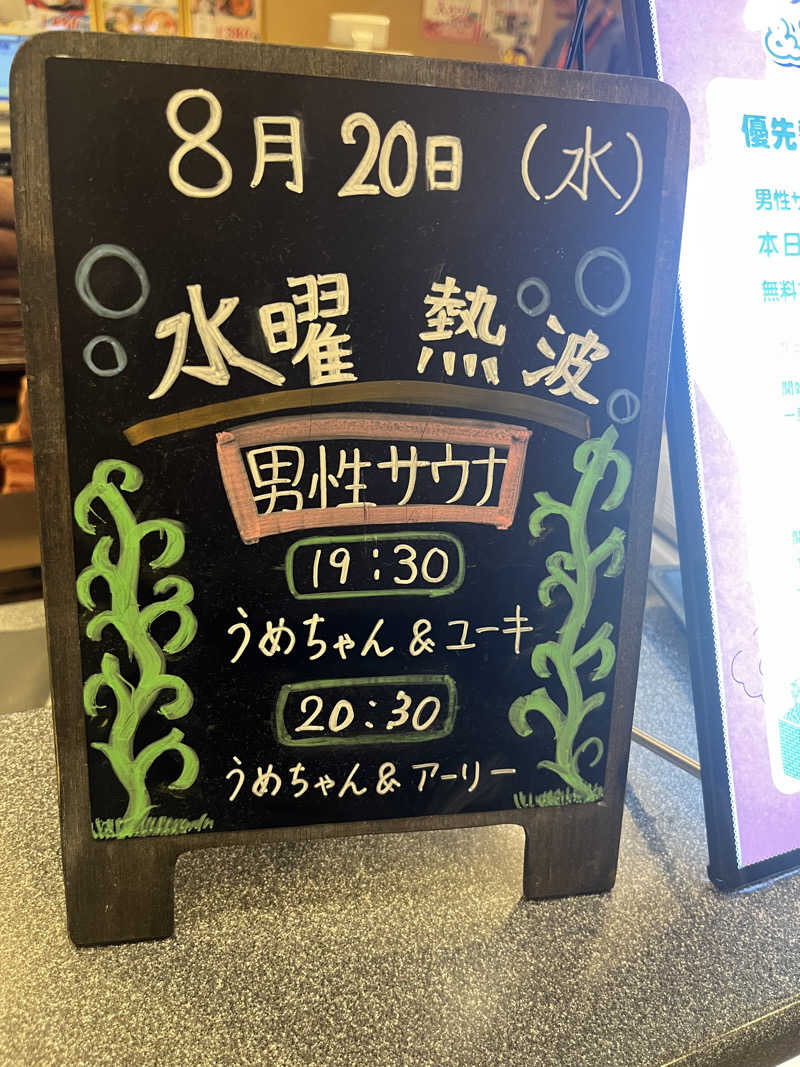 8月20日(水)
水曜 熱波
男性サウナ
19:30
うめちゃん&ユーキ
20:30
うめちゃん&アーリー
優先
男性サ
本日
無料